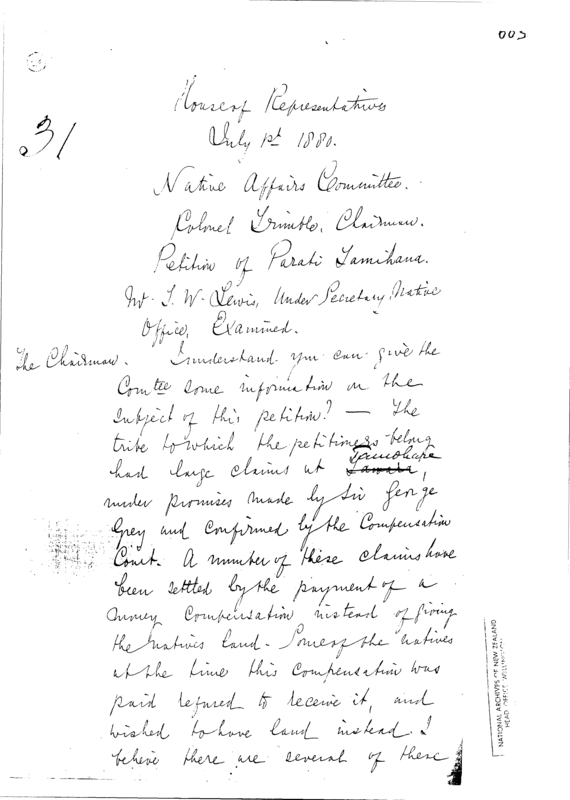 005
House of Representatives
31
July 1st 1880.
Native Affairs Committee.
Colonel Trimble, Chairman.
Petition of Parati Tamihana.
Mr. T. W. Lewis, Under Secretary Native
Office, Examined.
The Chairman. I understand you can give the
Comtee some information on the
subject of this petition? — The
tribe to which the petitioners belong
had large claims at Tawa,
under promises made by Sir George
Grey and confirmed by the Compensation
Court. A number of these claims have
been settled by the payment of a
money compensation instead of giving
the Natives land. Some of the natives
at the time this compensation was
paid refused to receive it, and
wished to have land instead. I
believe there are several of these
NATIONAL ARCHIVES OF NEW ZEALAND
HEAD OFFICE, WELLINGTON